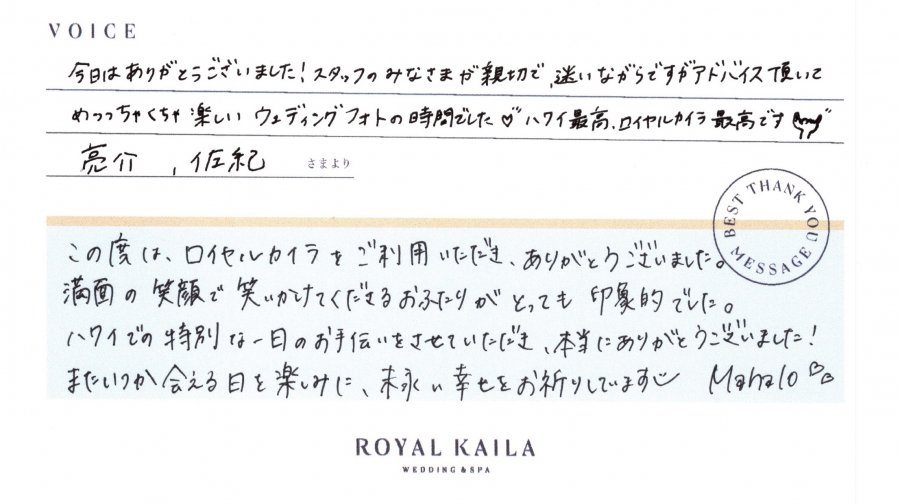 VOICE
今日はありがとうございました!スタッフのみなさまが親切で、迷いながらですがアドバイス頂いて
めっっちゃくちゃ楽しいウェディングフォトの時間でした♡ハワイ最高、ロイヤルカイラ最高です
亮介、佐紀 さまより
BEST THANK YOU MESSAGE
この度は、ロイヤルカイラをご利用いただき、ありがとうございました。
満面の笑顔で笑いかけてくださるおふたりがとっても印象的でした。
ハワイでの特別な一日のお手伝いをさせていただき、本当にありがとうございました!
またいつか会える日を楽しみに、末永い幸せをお祈りしています Mahalo♡♡
ROYAL KAILA
WEDDING & SPA